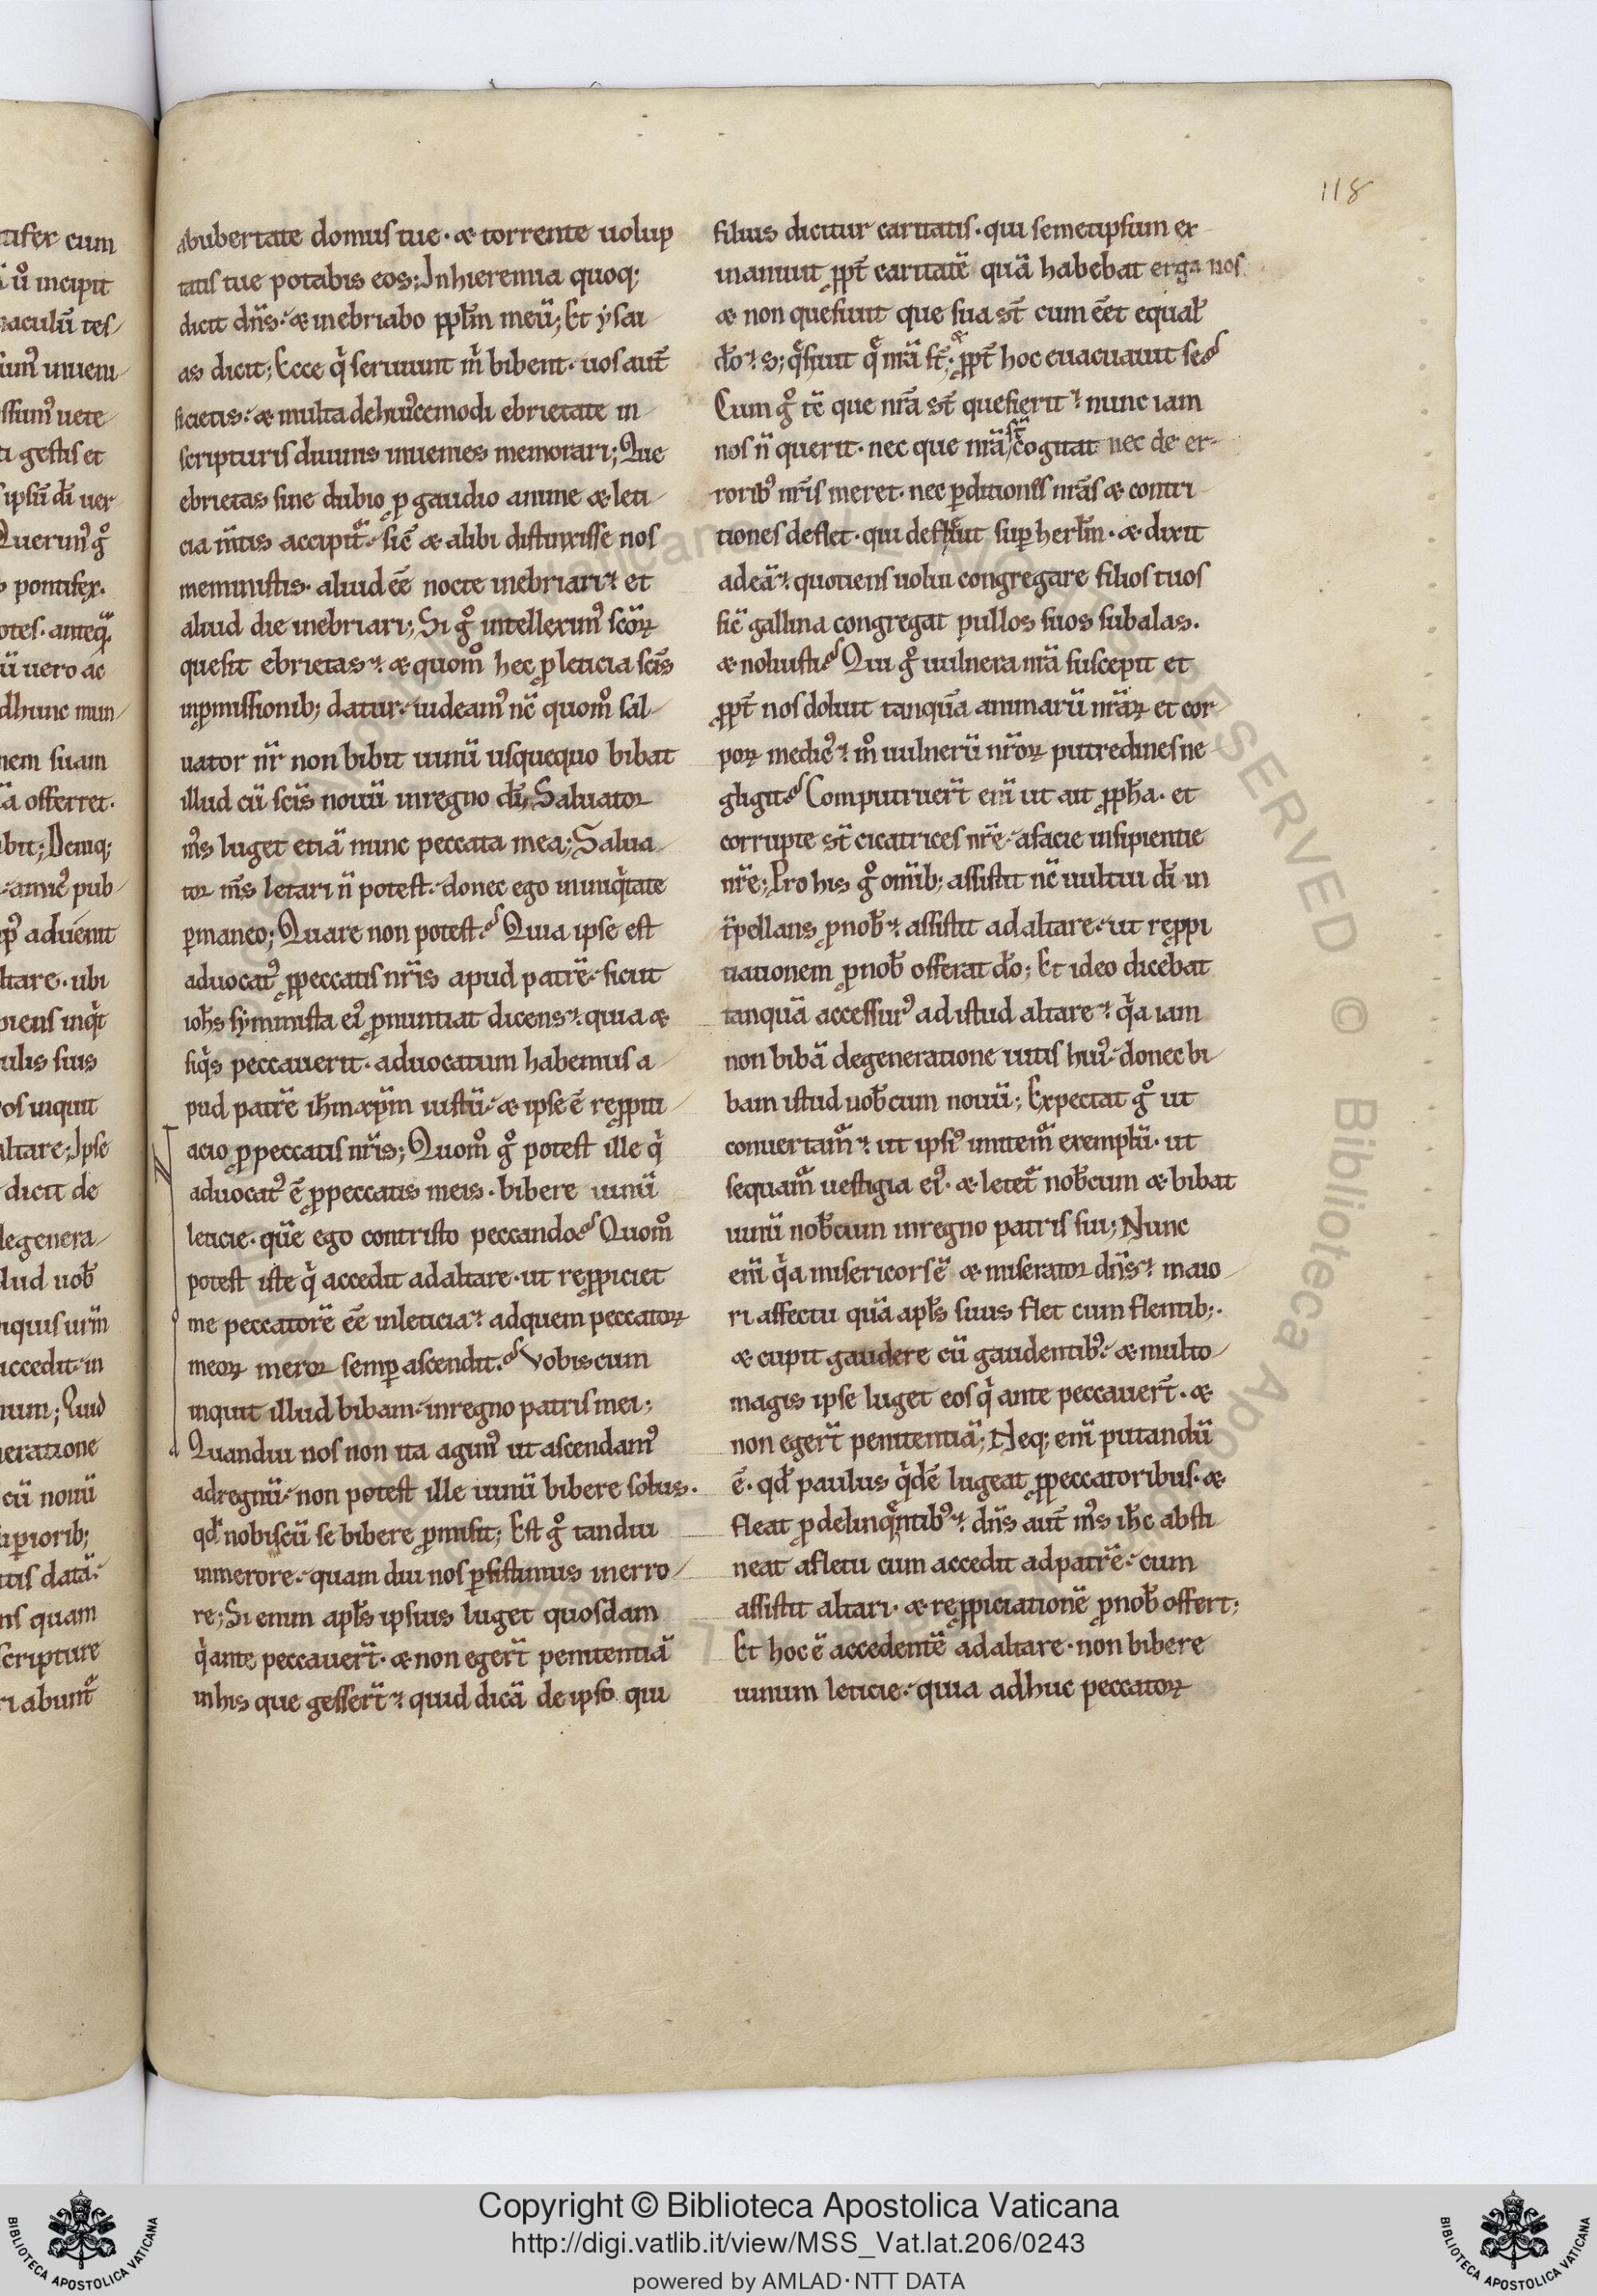 118
abubertate domus tue· & torrente uolup
tatis tue potabis eos; Inhieremia quoq;
dicit dn̄s· & inebriabo pp̄lm meū; Et ysai
as dicit; Ecce q̇ seruiunt ṁ bibent· uos aut̄
sicietis· & multa dehuꝰcemodi ebrietate in
scripturis diuinis inuenies memorari; Que
ebrietas sine dubio ꝓ gaudio anime & leti
cia m̄tis accipit᷑· sic̄ & alibi distinxisse nos
meministis· aliud eē nocte inebriari· et
aliud die inebriari; Si g̊ intellexim᷒ sc̄oꝝ
que sit ebrietas· & quom̊ hec ꝓ leticia sc̄is
inꝓmissionib; datur· uideam᷒ nc̄ quom̊ sal
uator nr̄ non bibit uinū usquequo bibat
illud cū sc̄is nouū inregno dī; Saluator
m̄s luget etiā nunc peccata mea; Salua
tor m̄s letari n̄ potest· donec ego ininiq̇tate
ꝑmaneo; Quare non potest? Quia ipse est
aduocat᷒ ꝓpeccatis nr̄is apud patrē· sicut
ioh̄s symmista ei᷒ ꝓnuntiat dicens· quia &
siq̇s peccauerit· aduocatum habemus a
pud patrē ih̄m xp̄m iustū· & ipse ē reꝓpiti
acio ꝓpeccatis nr̄is; Quom̊ g̊ potest ille q̇
aduocat᷒ ē ꝓpeccatis meis· bibere uinū
leticie· quē ego contristo peccando? Quom̊
potest iste q̇ accedit adaltare· ut reꝓpiciet
me peccatorē eē inleticia· adquem peccatoꝝ
meoꝝ meror semꝑ ascendit? Vobiscum
inquit illud bibam· inregno patris mei;
Quandiu nos non ita agim᷒ ut ascendam᷒
adregnū· non potest ille uinū bibere solus·
qd̄ nobiscū se bibere ꝓmisit; Est g̊ tandiu
inmerore· quam diu nos ꝑsistimus inerro
re; Si enim apl̄s ipsius luget quosdam
q̇ ante peccauer̄t· & non eger̄t penitentiā
inhis que gesser̄t· quid dicā de ipso qui
filius dicitur caritatis· qui semetipsum ex
inaniuit ꝓpt̄ caritatē quā habebat erga nos
& non quesiuit que sua st̄ cum eēt equal̄
dō· s; q̄siuit q̄ nr̄a st̄· & ꝓpt̄ hoc euacuauit se?
Cum g̊ tē que nr̄a st̄ quesierit· nunc iam
nos n̄ querit· nec que nr̄a st̄ cogitat nec de er-
rorib᷒ nr̄is meret· nec ꝑditiones nr̄as & contri
tiones deflet· qui defleuit suꝑ herl̄m· & dixit
adeā· quotiens uolui congregare filios tuos
sic̄ gallina congregat pullos suos subalas·
& noluisti? Qui g̊ uulnera nr̄a suscepit et
ꝓpt̄ nos doluit tanquā animarū nr̄aꝝ et cor
poꝝ medic᷒· m̊ uulnerū nr̄oꝝ putredines ne
gligit? Computruer̄t enī ut ait ꝓph̄a· et
corrupte st̄ cicatrices nr̄e· afacie insipientie
nr̄e; Pro his g̊ omib; assistit nc̄ uultui dī in
t̄pellans ꝓnob̄· assistit adaltare· ut reꝓpi
tiationem ꝓnob̄ offerat dō; Et ideo dicebat
tanquā accessur᷒ adistud altare· q̇a iam
non bibā degeneratione uitis hui᷒· donec bi
bam istud uob̄cum nouū; Expectat g̊ ut
conuertam᷑· ut ipsi᷒ imitem᷑ exemplū· ut
sequam᷑ uestigia ei᷒· & letet᷑ nob̄cum & bibat
uinū nob̄cum inregno patris sui; Nunc
enī q̇a misericors ē & miserator dn̄s· maio
ri affectu quā apl̄s suus flet cum flentib;·
& cupit gaudere cū gaudentib᷒· & multo
magis ipse luget eos q̇ ante peccauer̄t· &
non eger̄t penitentiā; Neq; enī putandū
ē· qd̄ paulus q̇dē lugeat ꝓpeccatoribus· &
fleat ꝓdelinquentib᷒· dn̄s aut̄ m̄s ih̄c absti
neat afletu cum accedit adpatrē· cum
assistit altari· & reꝓpiciationē ꝓnob̄ offert;
Et hoc ē accedentē adaltare· non bibere
uinum leticie· quia adhuc peccatoꝝ
Copyright © Biblioteca Apostolica Vaticana
http://digi.vatlib.it/view/MSS_Vat.lat.206/0243
powered by AMLAD·NTT DATA